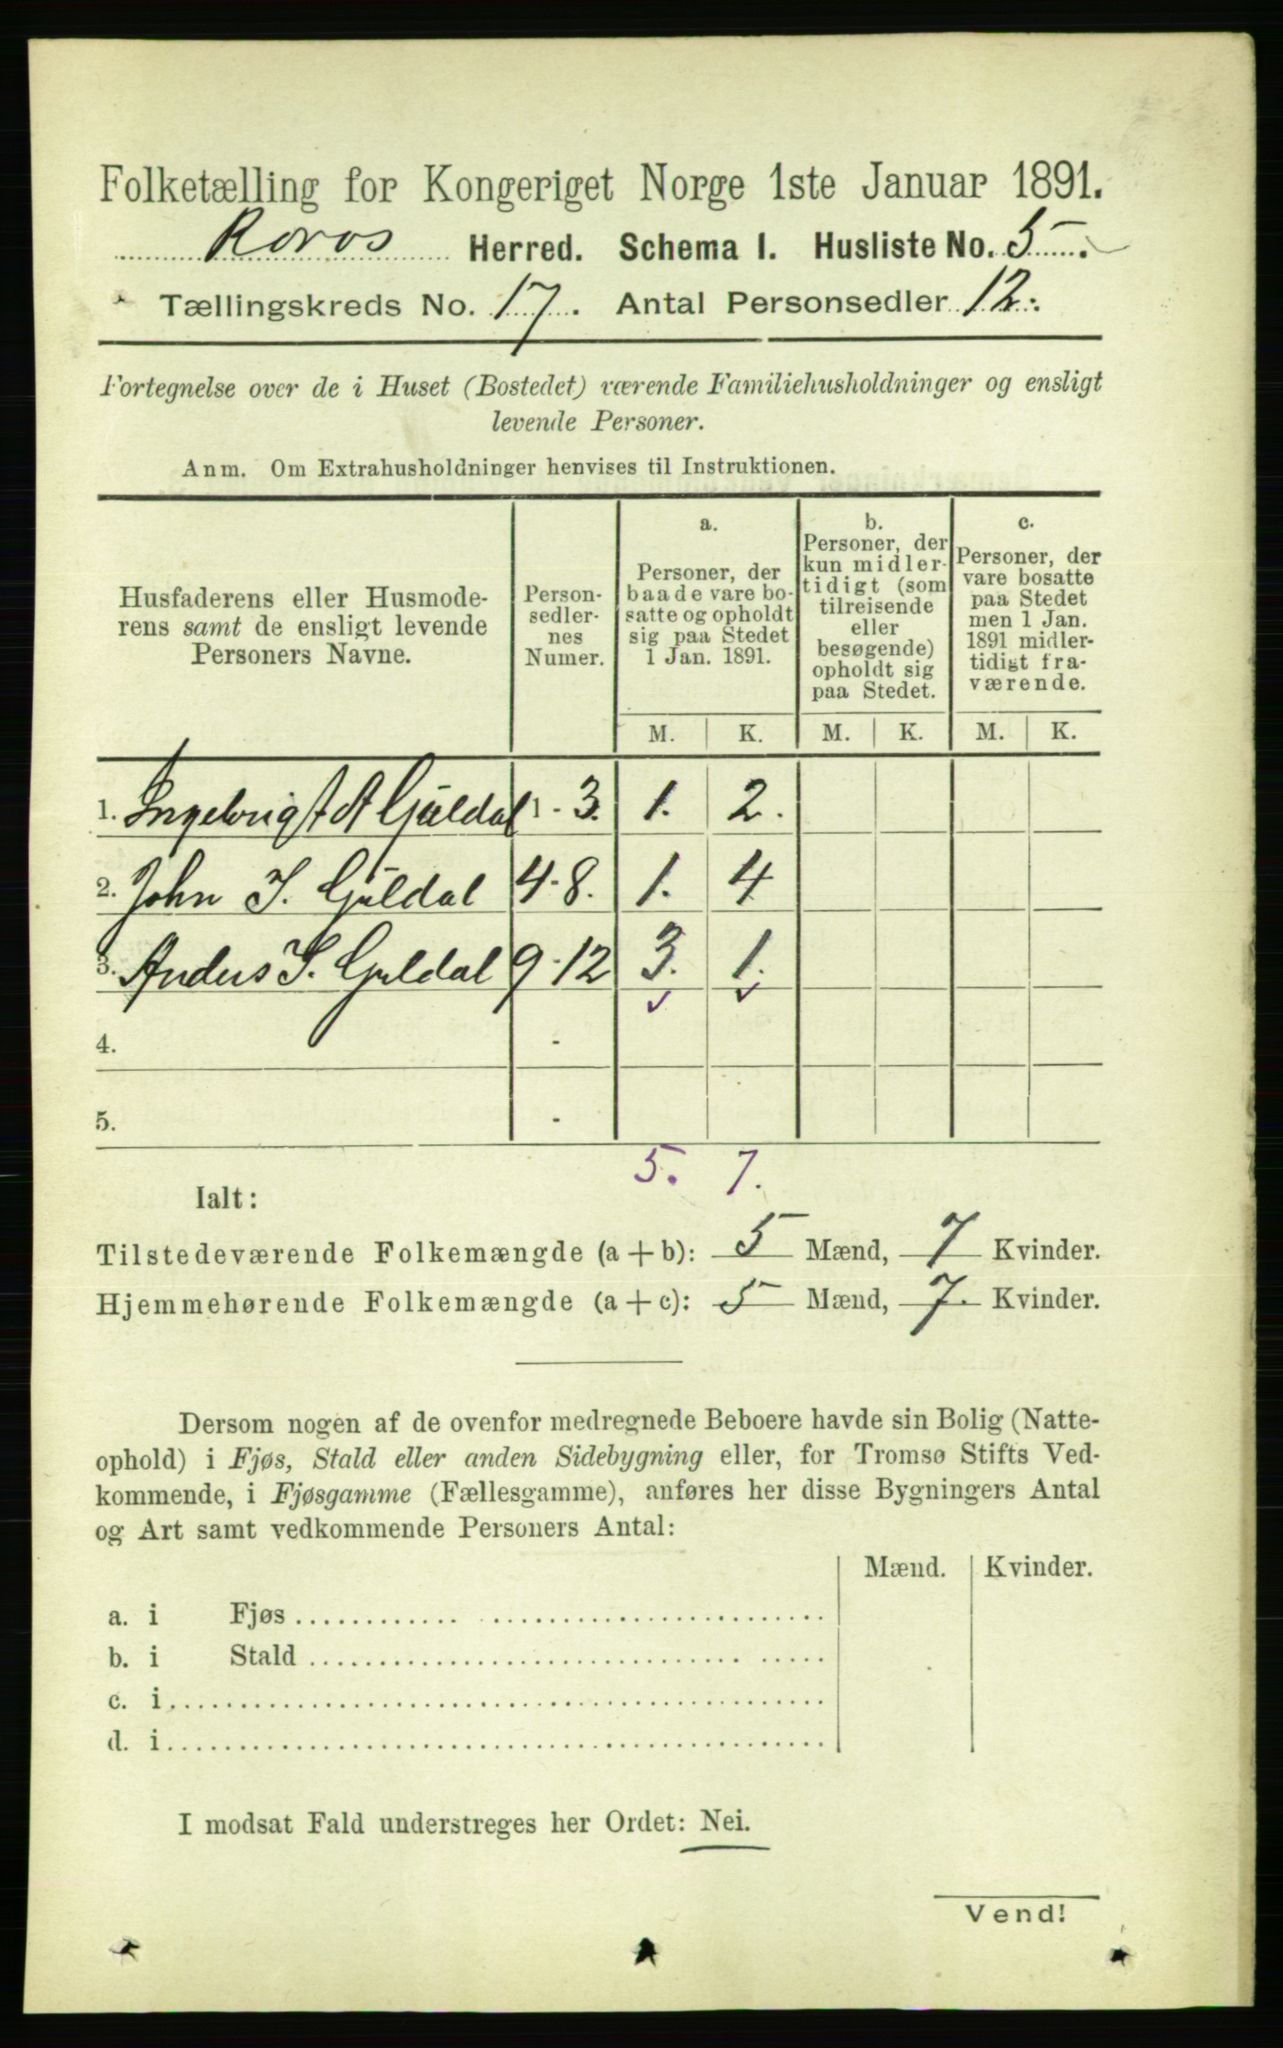 Folketælling for Kongeriget Norge 1ste Januar 1891.
Røros Herred. Schema I. Husliste No. 5.
Tællingskreds No. 17. Antal Personsedler 12.
Fortegnelse over de i Huset (Bostedet) værende Familiehusholdninger og ensligt
levende Personer.
Anm. Om Extrahusholdninger henvises til Instruktionen.
Husfaderens eller Husmode-
rens samt de ensligt levende
Personers Navne.
Person-
sedler-
nes
Numer.
a.
Personer, der
baade vare bo-
satte og opholdt
sig paa Stedet
1 Jan. 1891.
b.
Personer, der
kun midler-
tidigt (som
tilreisende
eller
besøgende)
opholdt sig
paa Stedet.
c.
Personer, der
vare bosatte
paa Stedet
men 1 Jan.
1891 midler-
tidigt fra-
værende.
M. K. M. K. M. K.
1. Ingebrigt A Guldal 1-3. 1. 2.
2. John I. Guldal 4-8. 1. 4
3. Anders I. Guldal 9-12 3. 1.
4. -
5. -
5. 7.
Ialt:
Tilstedeværende Folkemængde (a+b): 5 Mænd, 7 Kvinder.
Hjemmehørende Folkemængde (a+c): 5 Mænd, 7. Kvinder.
Dersom nogen af de ovenfor medregnede Beboere havde sin Bolig (Natte-
ophold) i Fjøs, Stald eller anden Sidebygning eller, for Tromsø Stifts Ved-
kommende, i Fjøsgamme (Fællesgamme), anføres her disse Bygningers Antal
og Art samt vedkommende Personers Antal:
Mænd. Kvinder.
a. i Fjøs
b. i Stald
c. i
d. i
I modsat Fald understreges her Ordet: Nei.
Vend!